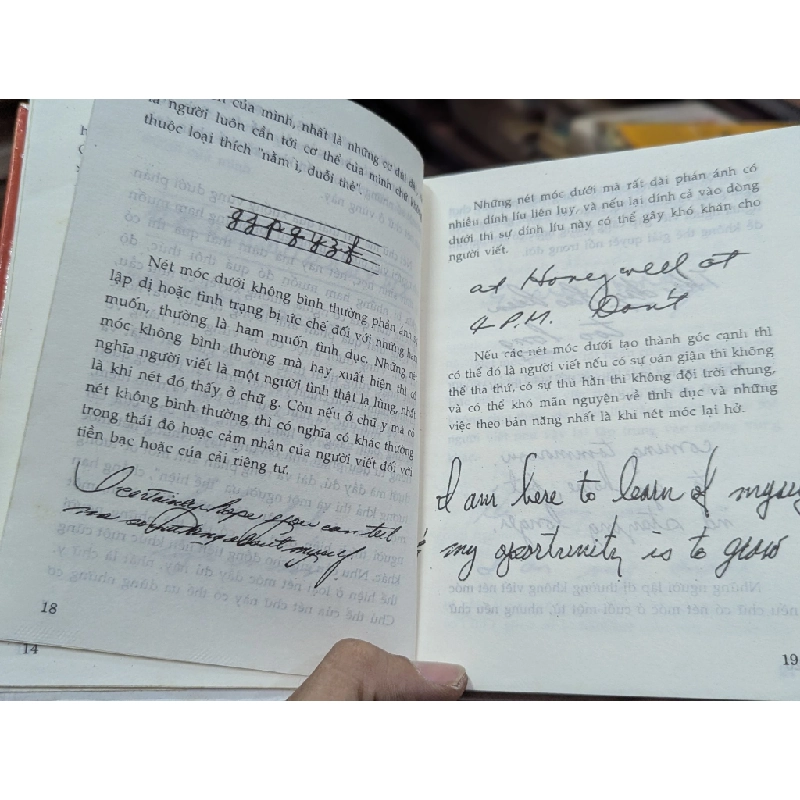 của mình, nhất là những cư
là người luôn cần tới cơ thể của mình chứ không
thuộc loại thích "nằm ì, duỗi thẻ".
g g p g y z f
Nét móc dưới không bình thường phản
lập dị hoặc tình trạng bị ức chế đối với những ham
muốn, thường là ham muốn tình dục. Những nét
móc không bình thường mà hay xuất hiện thì có
nghĩa người viết là một người tình thật lạ lùng, nhất
là khi nét đó thấy ở chữ g. Còn nếu ở chữ y mà có
nét không bình thường thì có nghĩa có khác thường
trong thái độ hoặc cảm nhân của người viết đối với
tiền bạc hoặc của cải riêng tư.
I certainly hope you can tell
me something about myself
18
14
Những nét móc dưới mà rất dài phản ánh có
nhiều dính líu liên luy, và nếu lại dính cả vào dòng
dưới thì sự dính líu này có thể gây khó khăn cho
người viết.
at Honeywell at
4 P.M. Don't
Nếu các nét móc dưới tạo thành góc cạnh thì
có thể đó là người viết nếu có sự oán giận thì không
thể tha thứ, có sự thù hằn thì không đội trời chung,
và có thể khó mãn nguyện về tình dục và những
việc theo bản năng nhất là khi nét móc lại hở.
I am here to learn of myself
my oportrunity is to grow
19